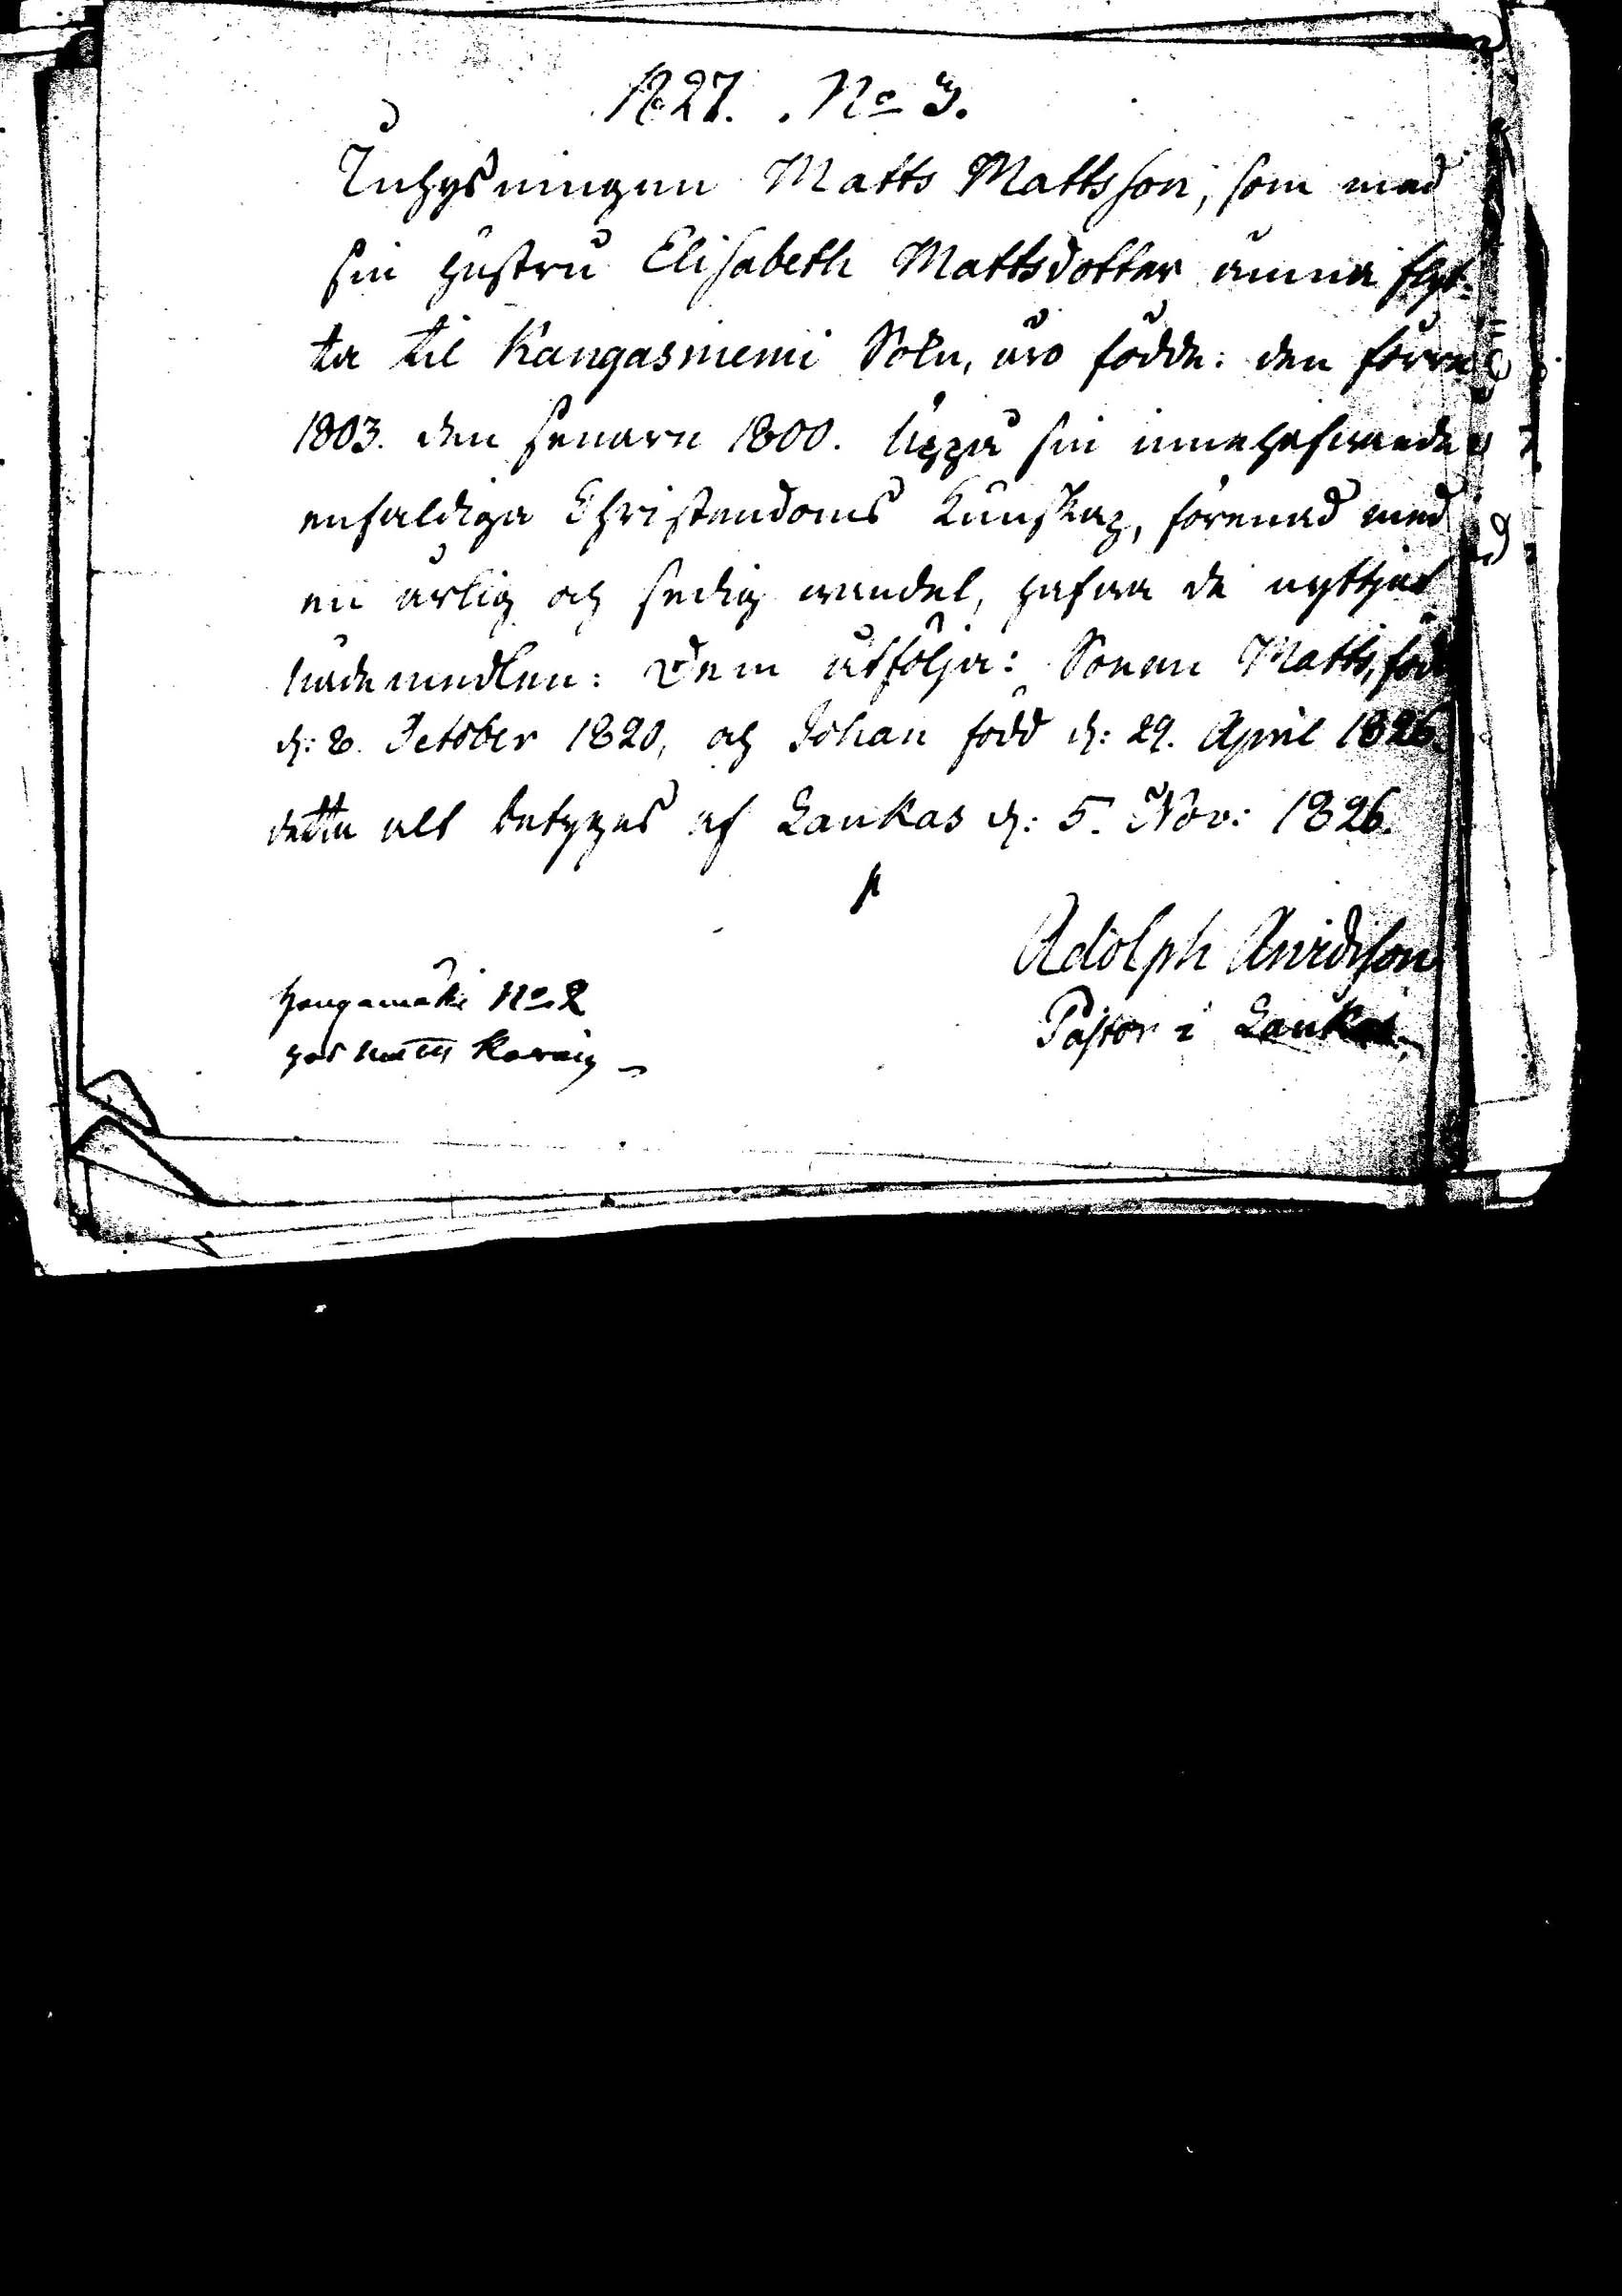 1827. No 3.
Inhysningen Matts Mattsson, som med
sin hustru Elisabeth Mattsdotter ämna flyt-
ta til Kangasniemi Sokn, äro födde: den förre
1803. den senare 1800. Uppå sin innehafwande
enfaldiga Christendoms Kunskap, förenad med
en ärlig och sedig wandel, hafwa de nyttjat
nådemedlen: Dem åtfölja: Sonen Matts, född
d: 8. October 1820, och Johan född d: 29. April 1826.
detta alt betyges af Laukas d: 5. Nov: 1826.
Adolph Arvidsson
Pastor i Laukas
Hongamäki No 2
hos Matts